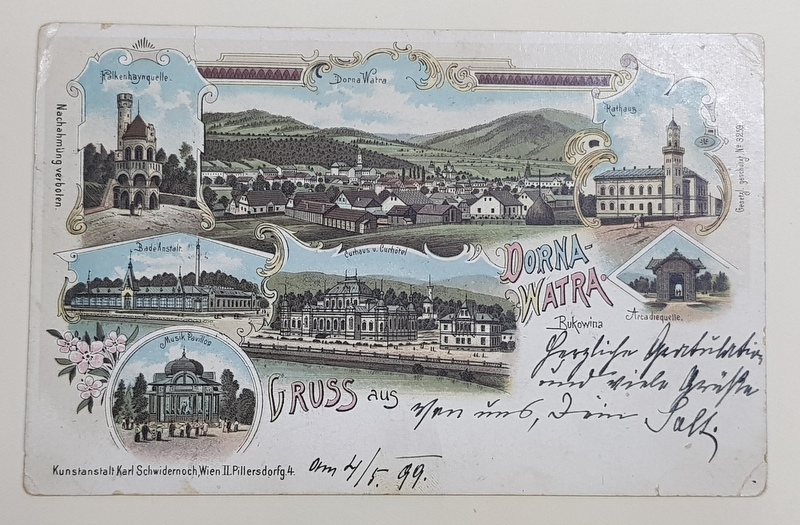 Falkenhaynquelle.
Dorna Watra
Rathaus
Nachahmung verboten
Gesetzl. geschützt № 3259
Bade Anstalt.
Curhaus u. Curhôtel
DORNA-
WATRA.
Bukowina
Arcadiequelle.
Musik Pavillon
GRUSS aus
Herzliche Gratulation
und viele Grüße
von uns, Dein
Kunstanstalt Karl Schwidernoch, Wien II. Pillersdorfg. 4.
am 4/5 99.